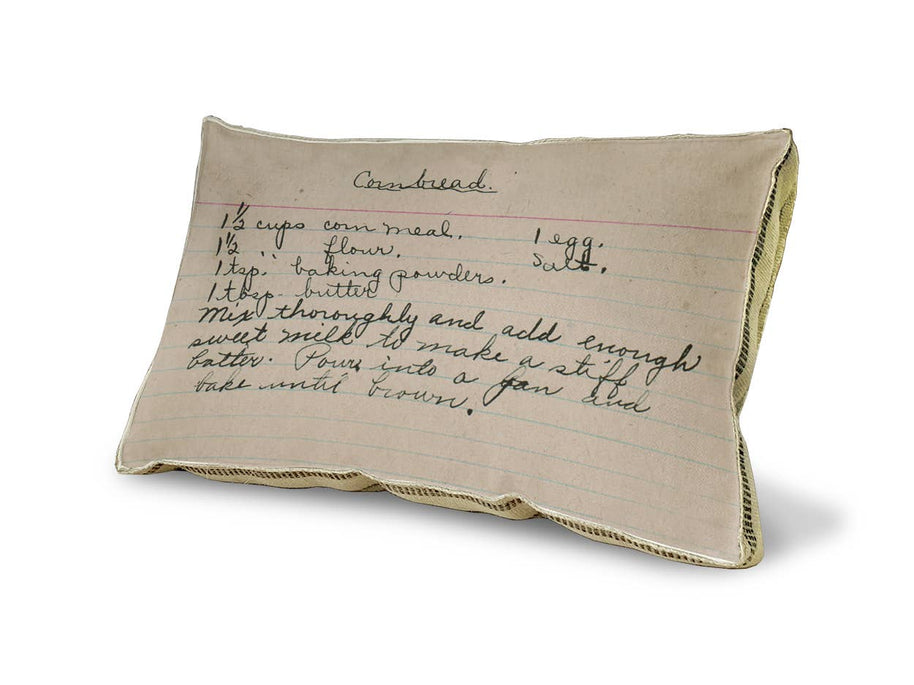 Cornbread.
1½ cups corn meal. 1 egg.
1½ " flour. Salt.
1 tsp. baking powders.
1 tbsp. butter
Mix thoroughly and add enough
sweet milk to make a stiff
batter. Pour into a pan and
bake until brown.